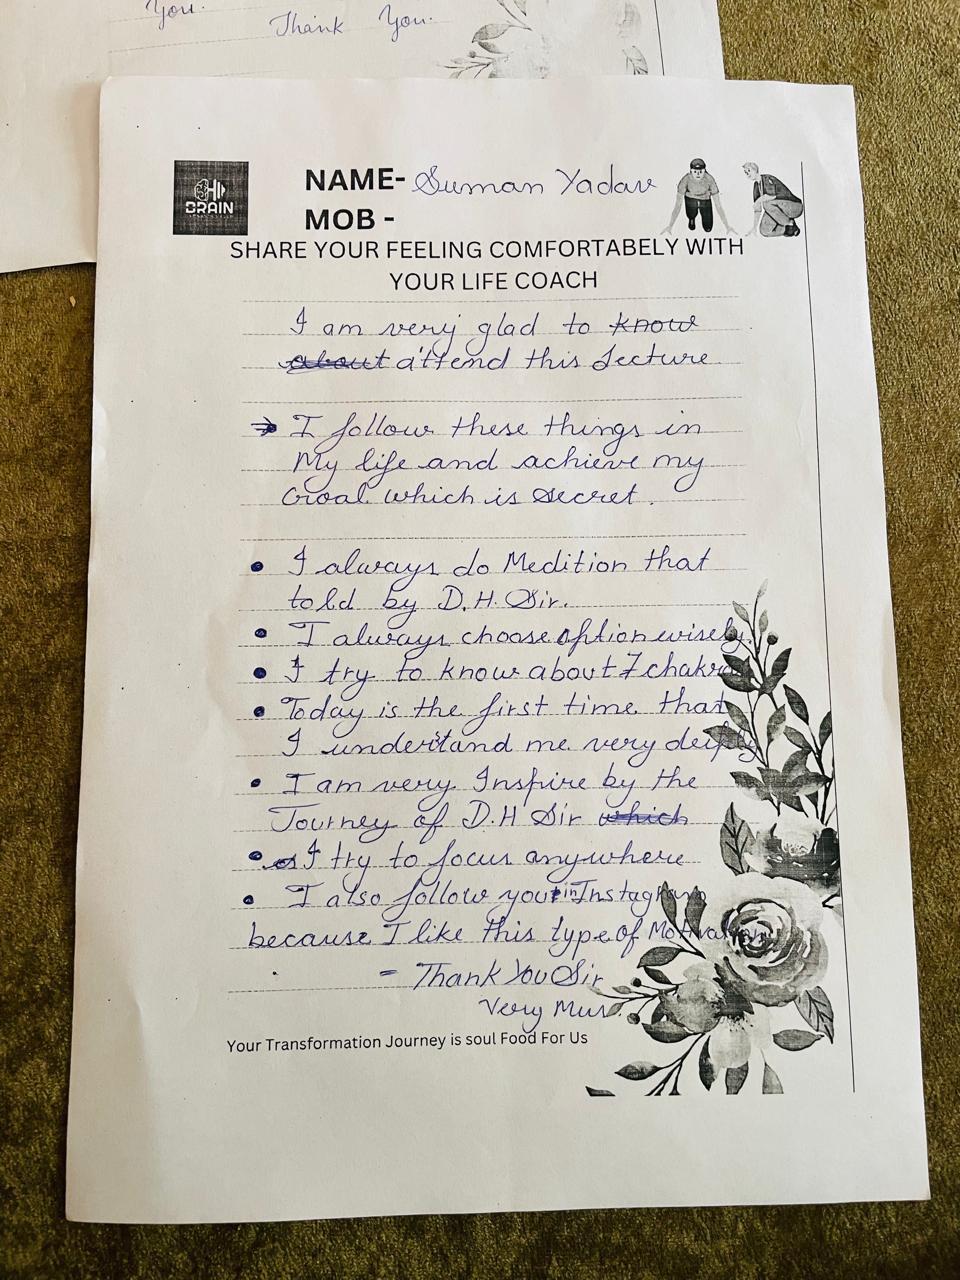 You.
Thank You.
BRAIN
NAME- Suman Yadav
MOB -
SHARE YOUR FEELING COMFORTABELY WITH
YOUR LIFE COACH
I am very glad to know
about attend this Lecture
→ I follow these things in
My life and achieve my
Goal which is secret.
• I always do Medition that
told by D.H. Sir.
• I always choose option wisely.
• I try to know about 7 chakra
• Today is the first time that
I understand me very deeply
• I am very Inspire by the
Journey of D.H Sir which
• I try to focus anywhere
• I also follow your in Instagram
because I like this type of Motivation
- Thank You Sir
Very Much
Your Transformation Journey is soul Food For Us